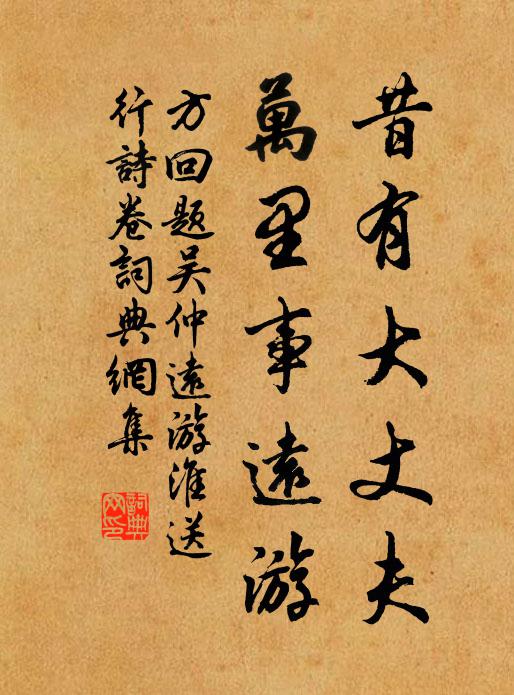 昔有大丈夫
萬里事遠游
方回題吴仲遠游淮送
行詩卷詞典網集
詞典
网印